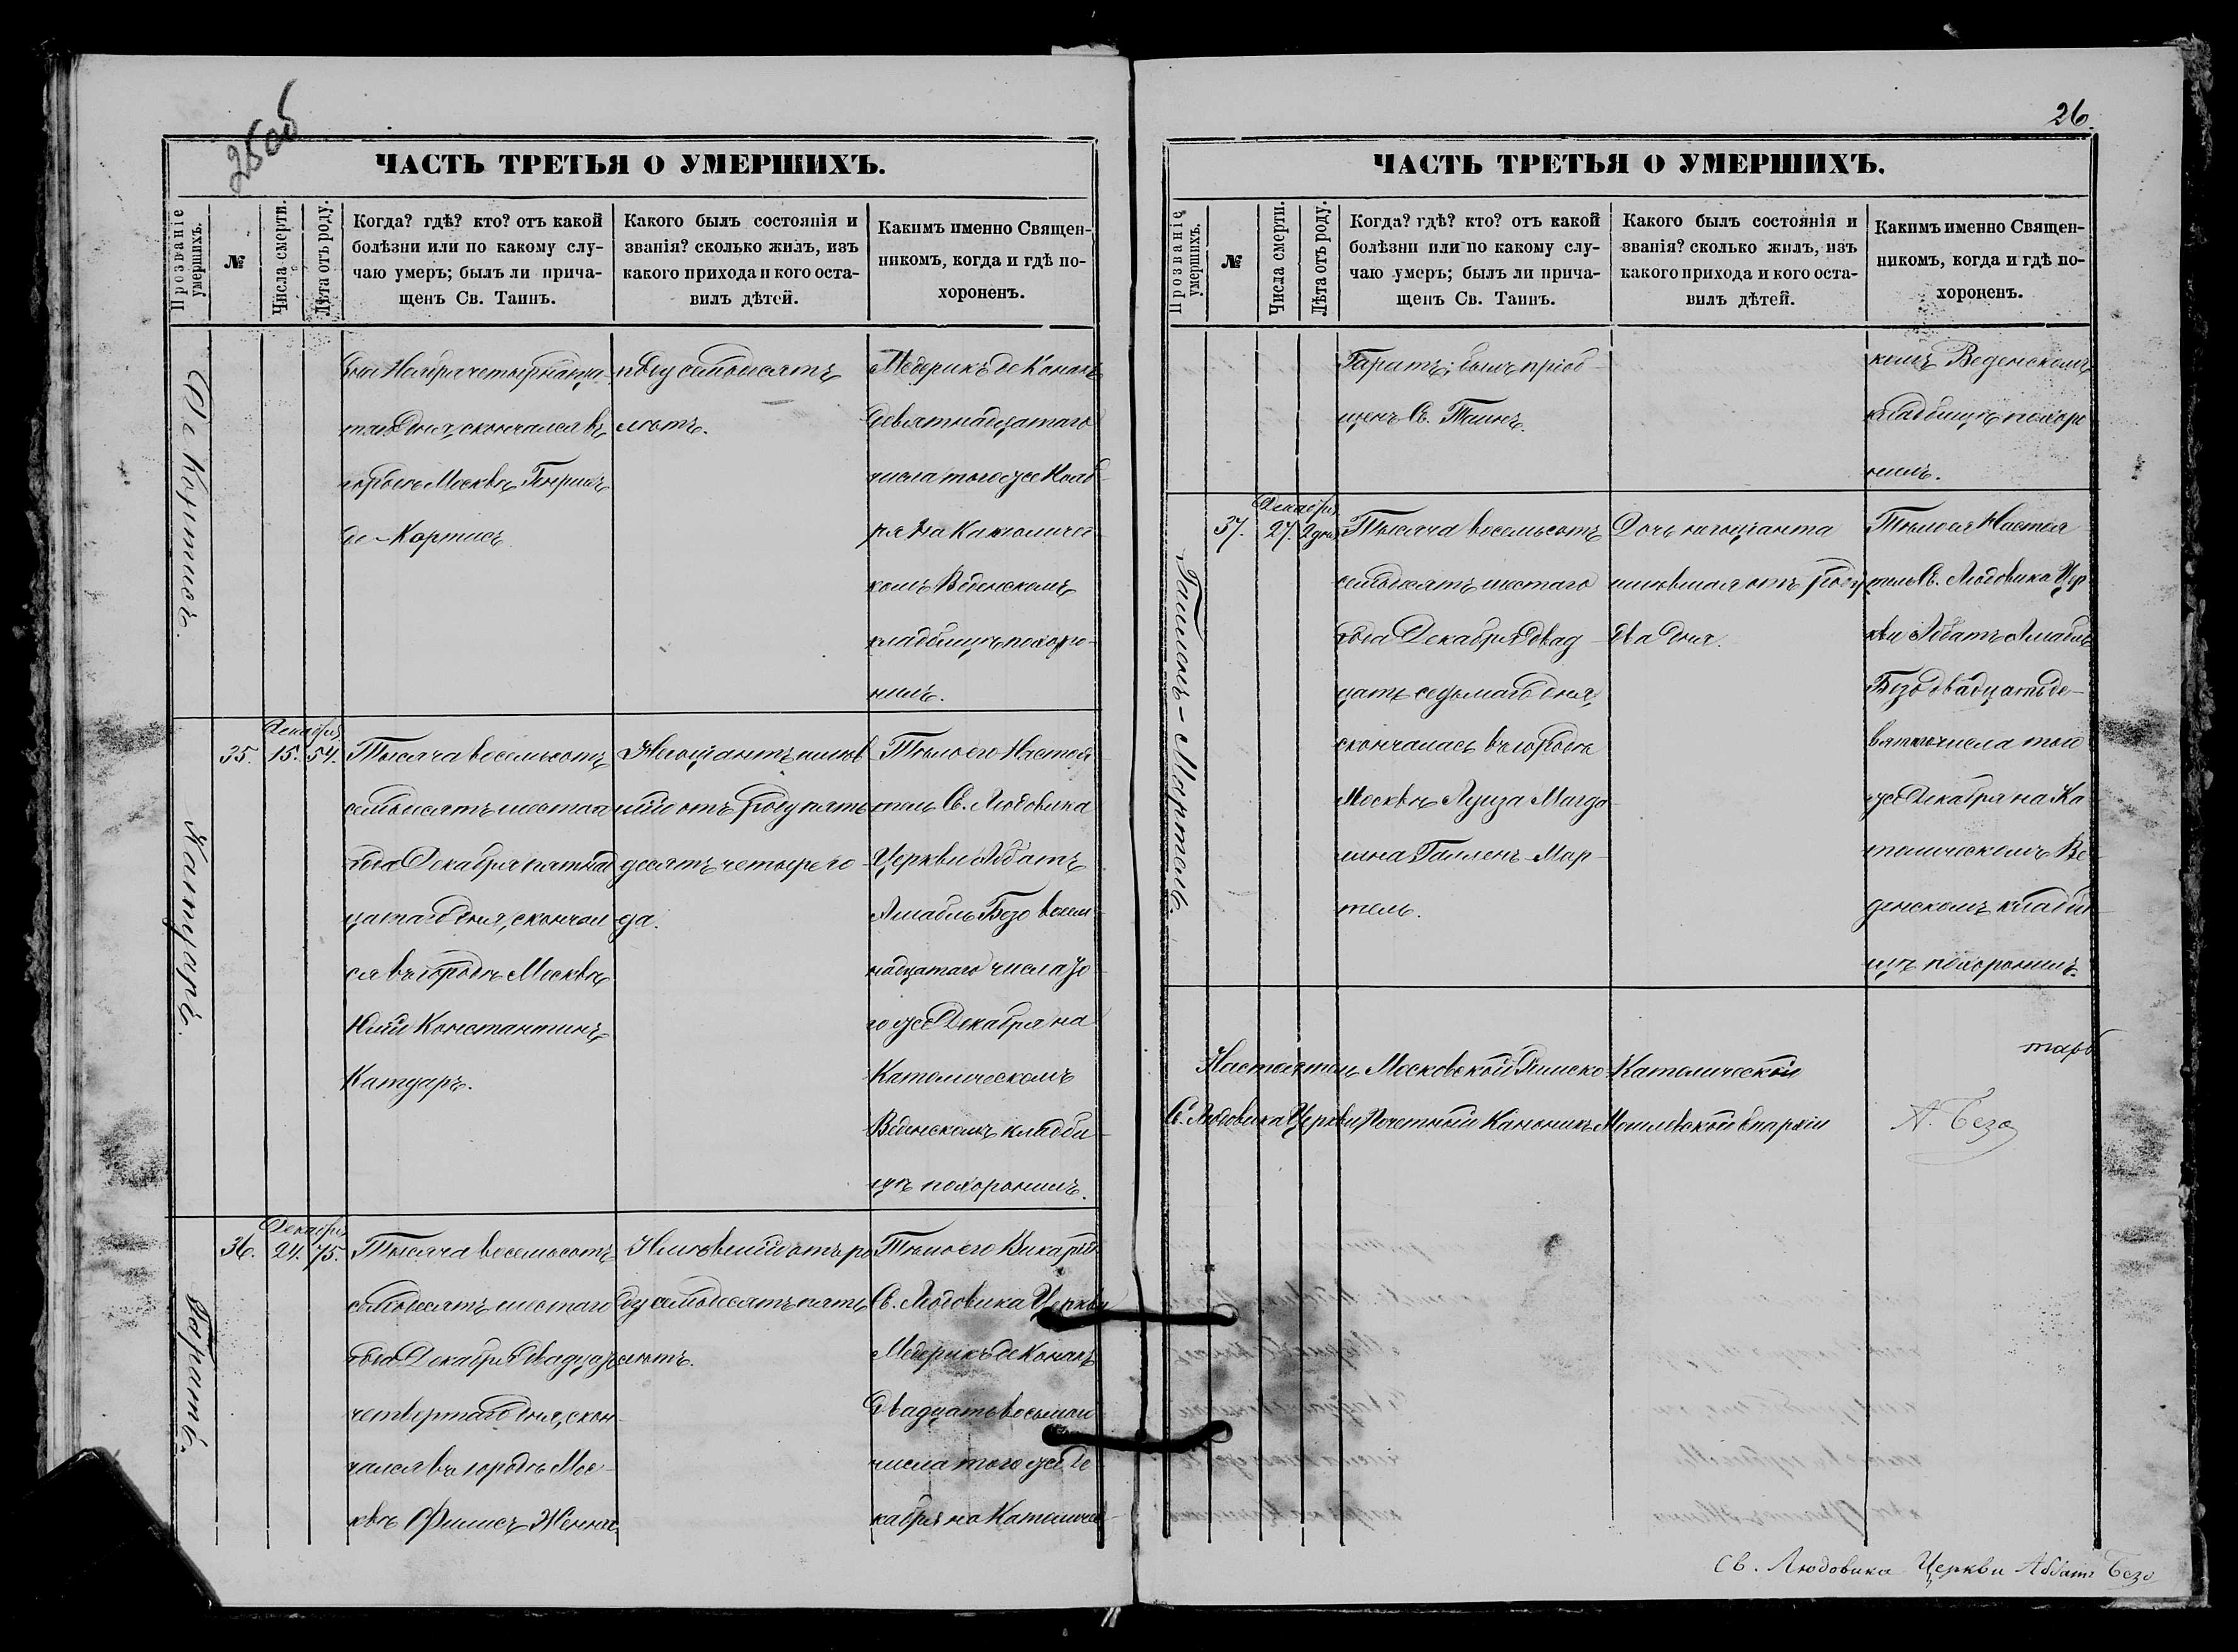 25об
ЧАСТЬ ТРЕТЬЯ О УМЕРШИХЪ.
Прозваніе умершихъ.
№
Числа смерти.
Лѣта отъ роду.
Когда? гдѣ? кто? отъ какой
болѣзни или по какому слу-
чаю умеръ; былъ ли прича-
щенъ Св. Таинъ.
Какого былъ состоянія и
званія? сколько жилъ, изъ
какого прихода и кого оста-
вилъ дѣтей.
Какимъ именно Священ-
никомъ, когда и гдѣ по-
хороненъ.
Де Кортисъ.
года Ноября четырнадца-
таго дня, скончался въ
городѣ Москвѣ
де-Кортисъ
роду семьдесятъ
лѣтъ.
Медерикъ де Конакъ
девятнадцатаго
числа того же Нояб-
ря на Католичес-
комъ Веденскомъ
кладбищѣ похоро-
нилъ.
Катуаръ.
35.
Декабря
15.
54.
Тысяча восемьсотъ
семьдесятъ шестаго
года Декабря пятнад
цатаго дня, скончал
ся въ городѣ Москвѣ
Юлій Константинъ
Катуаръ.
Негоціантъ имѣв
шій отъ роду пять
десятъ четыре го
да.
Тѣло его Настоя
тель Св. Людовика
Церкви Аббатъ
Амабль Безо восем
надцатаго числа то
го же Декабря на
Католическомъ
Веденскомъ кладби
щѣ похоронилъ.
Гаратъ.
36.
Декабря
24.
75.
Тысяча восемьсотъ
семьдесятъ шестаго
года Декабря двадцать
четвертаго дня, скон-
чался въ городѣ Мос-
квѣ Филисъ Женни
Имѣвшій отъ ро
ду семьдесятъ пять
лѣтъ.
Тѣло его Викарій
Св. Людовика Церкви
Медерикъ де Конакъ
двадцать восьмаго
числа того же Де
кабря на Католичес-
26.
ЧАСТЬ ТРЕТЬЯ О УМЕРШИХЪ.
Прозваніе умершихъ.
№
Числа смерти.
Лѣта отъ роду.
Когда? гдѣ? кто? отъ какой
болѣзни или по какому слу-
чаю умеръ; былъ ли прича-
щенъ Св. Таинъ.
Какого былъ состоянія и
званія? сколько жилъ, изъ
какого прихода и кого оста-
вилъ дѣтей.
Какимъ именно Священ-
никомъ, когда и гдѣ по-
хороненъ.
Гаратъ; былъ пріоб-
щенъ Св. Таинъ.
комъ Веденскомъ
кладбищѣ похоро
нилъ.
Галленъ-Мартель.
37.
Декабря
27.
2 дня
Тысяча восемьсотъ
семьдесятъ шестаго
года Декабря двад-
цать седьмаго дня,
скончалась въ городѣ
Москвѣ Луиза Магда-
лина Галленъ-Мар-
тель.
Дочь негоціанта
имѣвшая отъ роду
два дня.
Тѣло ея Настоя
тель Св. Людовика Цер
кви Аббатъ Амабль
Безо двадцать де-
вятаго числа того
же Декабря на Ка
толическомъ Ве
денскомъ кладби-
щѣ похоронилъ.
Настоятель Московской Римско-Католической
Св. Людовика Церкви, Почетный Каноникъ Могилевской Епархіи
А. Безо
Св. Людовика Церкви Аббатъ Безо